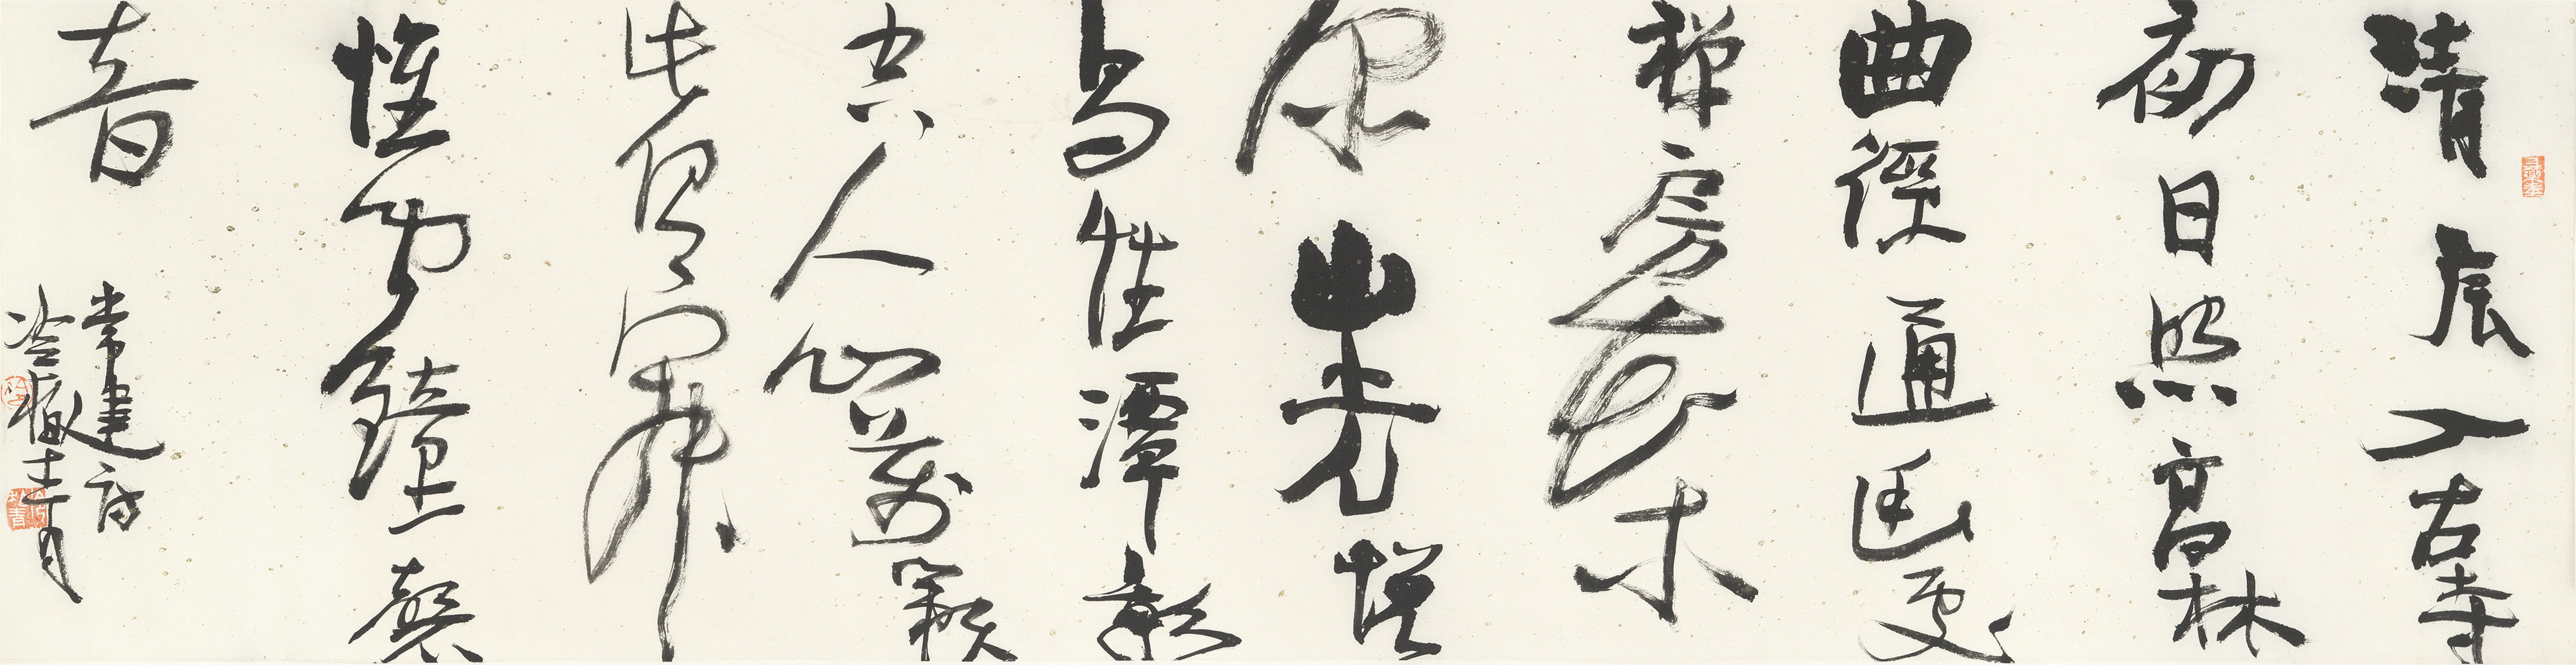 清辰入古寺
初日照高林
曲徑通幽處
禪房花木
深山光悅
鳥性潭影
空人心萬籟
此俱寂
惟聞鐘磬
音
常建詩